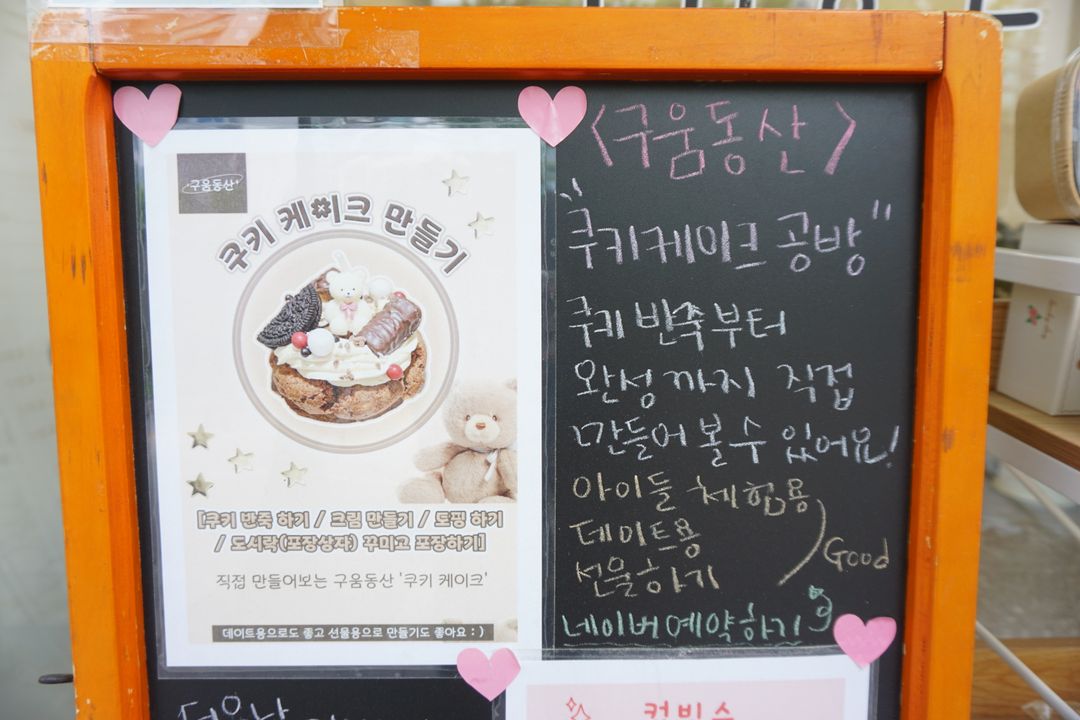 구움동산
쿠키 케이크 만들기
[쿠키 반죽 하기 / 크림 만들기 / 토핑 하기
/ 도시락(포장상자) 꾸미고 포장하기]
직접 만들어보는 구움동산 '쿠키 케이크'
데이트용으로도 좋고 선물용으로 만들기도 좋아요 : )
<구움동산>
"쿠키케이크 공방"
쿠키 반죽부터
완성까지 직접
만들어 볼 수 있어요!
아이들 체험용
데이트용
선물하기
Good
네이버예약하기
컵빙수